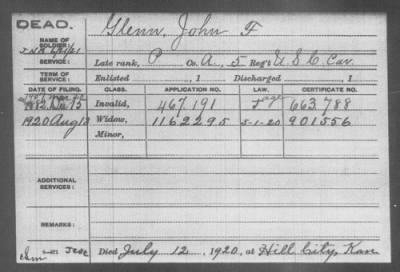 DEAD.
Glenn, John F
NAME OF SOLDIER:
SERVICE: Late rank, P Co. A, 5 Reg't U.S.C. Cav.
TERM OF SERVICE: Enlisted , 1 Discharged , 1
DATE OF FILING. CLASS. APPLICATION NO. LAW. CERTIFICATE NO.
1882, 15 Invalid, 467.191 663.788
1920 Aug 13 Widow, 1162295 5-1-20 901556
Minor,
ADDITIONAL SERVICES:
REMARKS:
Died July 12, 1920, at Hill City, Kan